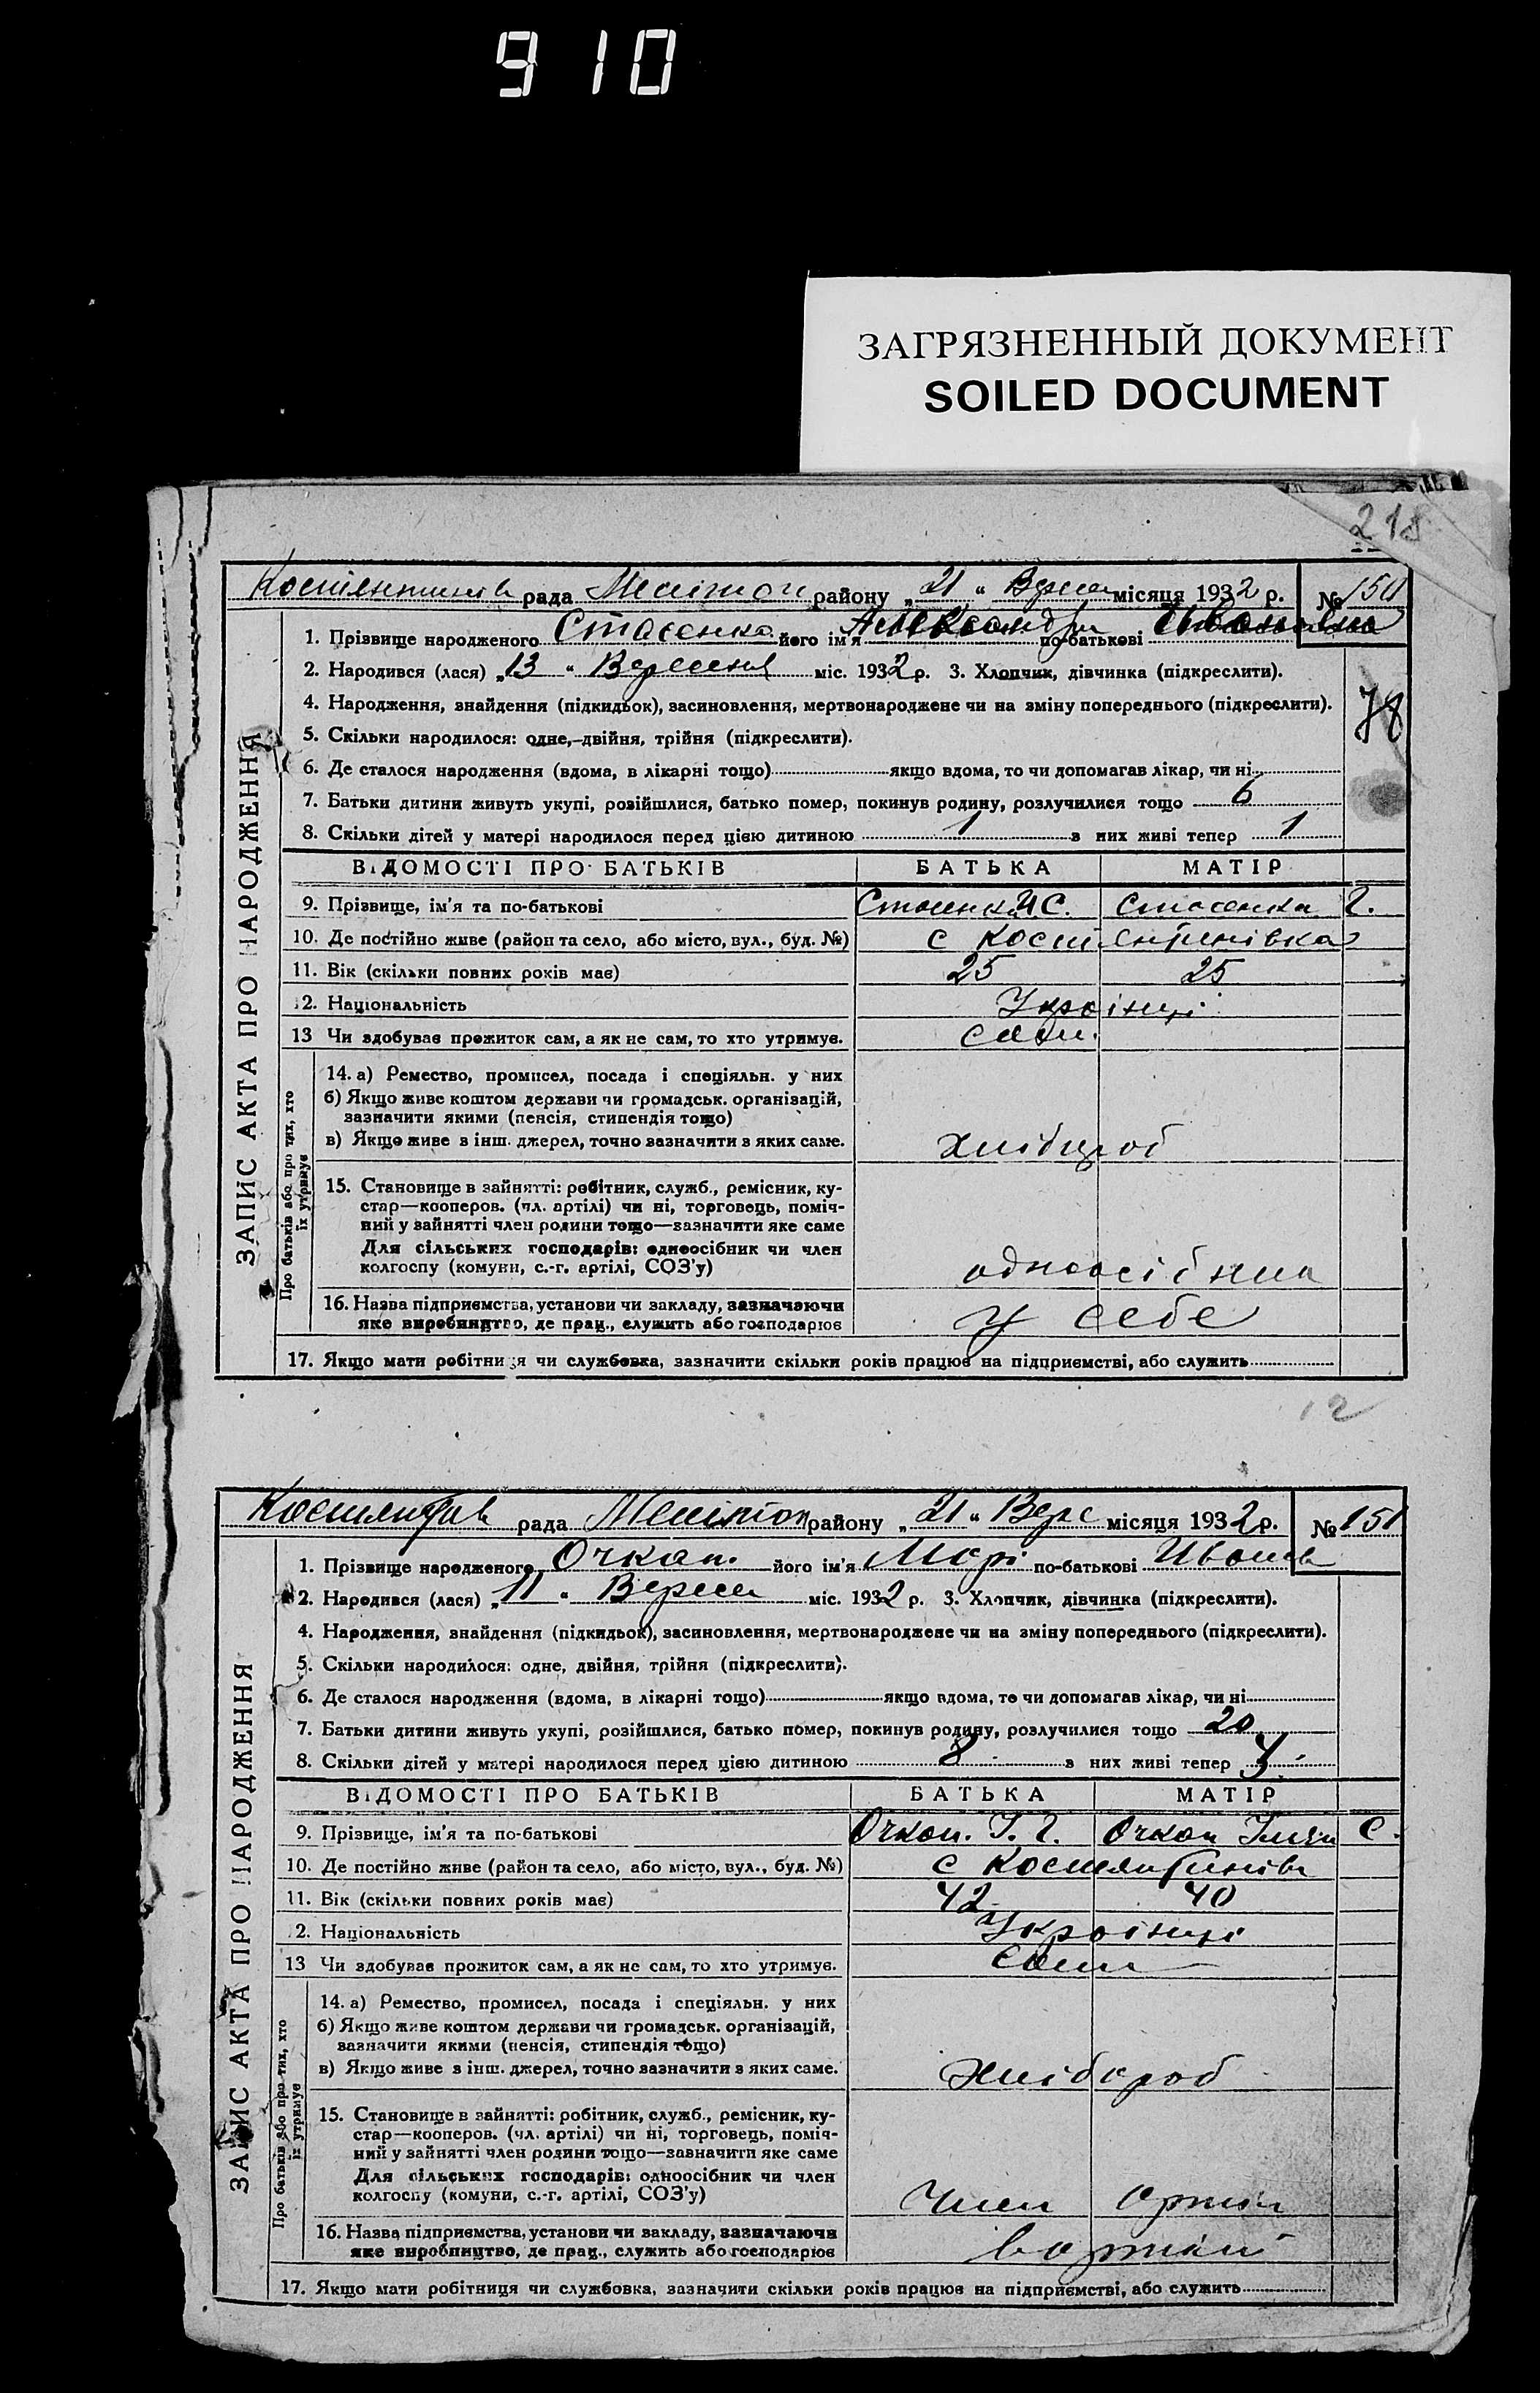 910
ЗАГРЯЗНЕННЫЙ ДОКУМЕНТ
SOILED DOCUMENT
218
рада Мелітоп району „21“ Верес місяця 1932 р. № 150
1. Прізвище народженого Стасенко його ім'я Александр по-батькові
2. Народився (лася) „13“ Вересня міс. 1932 р. 3. Хлопчик, дівчинка (підкреслити).
4. Народження, знайдення (підкидьок), засиновлення, мертвонароджене чи на зміну попереднього (підкреслити).
78
5. Скільки народилося: одне, двійня, трійня (підкреслити).
6. Де сталося народження (вдома, в лікарні тощо) якщо вдома, то чи допомагав лікар, чи ні
7. Батьки дитини живуть укупі, розійшлися, батько помер, покинув родину, розлучилися тощо 6
8. Скільки дітей у матері народилося перед цією дитиною 1 з них живі тепер 1
ВІДОМОСТІ ПРО БАТЬКІВ БАТЬКА МАТІР
9. Прізвище, ім'я та по-батькові Стасенко И С. Стасенка Г.
10. Де постійно живе (район та село, або місто, вул., буд. №) с Костянтинівка
11. Вік (скільки повних років має) 25 25
12. Національність Українці
13 Чи здобував прожиток сам, а як не сам, то хто утримує. сами
ЗАПИС АКТА ПРО НАРОДЖЕННЯ
Про батьків або про тих, хто їх утримує
14. а) Ремество, промисел, посада і спеціяльн. у них
б) Якщо живе коштом держави чи громадськ. організацій,
зазначити якими (пенсія, стипендія тощо)
в) Якщо живе з інш. джерел, точно зазначити з яких саме. хлібороб
15. Становище в зайнятті: робітник, служб., ремісник, ку-
стар—кооперов. (чл. артілі) чи ні, торговець, поміч-
ний у зайнятті член родини тощо—зазначити яке саме
Для сільських господарів: одноосібник чи член
колгоспу (комуни, с.-г. артілі, СОЗ'у) одноосібник
16. Назва підприємства, установи чи закладу, зазначаючи
яке виробництво, де прац., служить або господарює у себе
17. Якщо мати робітниця чи службовка, зазначити скільки років працює на підприємстві, або служить
12
рада Мелітоп району „21“ Верес місяця 1932 р. № 151
1. Прізвище народженого Очкап. його ім'я Марі по-батькові Иванов
2. Народився (лася) „11“ Верес міс. 1932 р. 3. Хлопчик, дівчинка (підкреслити).
4. Народження, знайдення (підкидьок), засиновлення, мертвонароджене чи на зміну попереднього (підкреслити).
5. Скільки народилося: одне, двійня, трійня (підкреслити).
6. Де сталося народження (вдома, в лікарні тощо) якщо вдома, то чи допомагав лікар, чи ні
7. Батьки дитини живуть укупі, розійшлися, батько помер, покинув родину, розлучилися тощо 20
8. Скільки дітей у матері народилося перед цією дитиною 8 з них живі тепер
ВІДОМОСТІ ПРО БАТЬКІВ БАТЬКА МАТІР
9. Прізвище, ім'я та по-батькові Очкап. І. Г. Очкап С.
10. Де постійно живе (район та село, або місто, вул., буд. №) с Костянтинівк
11. Вік (скільки повних років має) 42 40
12. Національність Українці
13 Чи здобував прожиток сам, а як не сам, то хто утримує. Сами
ЗАПИС АКТА ПРО НАРОДЖЕННЯ
Про батьків або про тих, хто їх утримує
14. а) Ремество, промисел, посада і спеціяльн. у них
б) Якщо живе коштом держави чи громадськ. організацій,
зазначити якими (пенсія, стипендія тощо)
в) Якщо живе з інш. джерел, точно зазначити з яких саме. хлібороб
15. Становище в зайнятті: робітник, служб., ремісник, ку-
стар—кооперов. (чл. артілі) чи ні, торговець, поміч-
ний у зайнятті член родини тощо—зазначити яке саме
Для сільських господарів: одноосібник чи член
колгоспу (комуни, с.-г. артілі, СОЗ'у) Член артілі
16. Назва підприємства, установи чи закладу, зазначаючи
яке виробництво, де прац., служить або господарює в артілі
17. Якщо мати робітниця чи службовка, зазначити скільки років працює на підприємстві, або служить